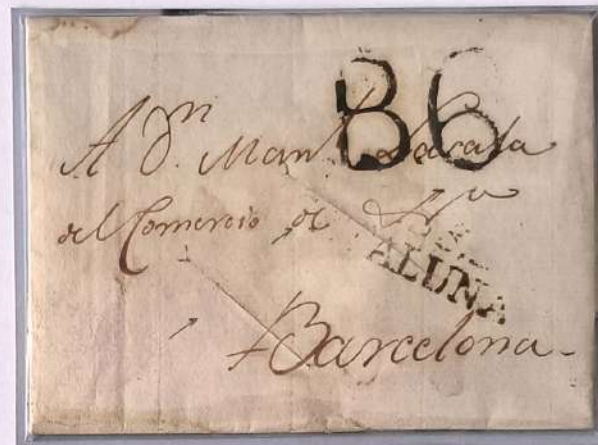 B6
A Dn. Manl.
del Comercio de
ALUNA
Barcelona